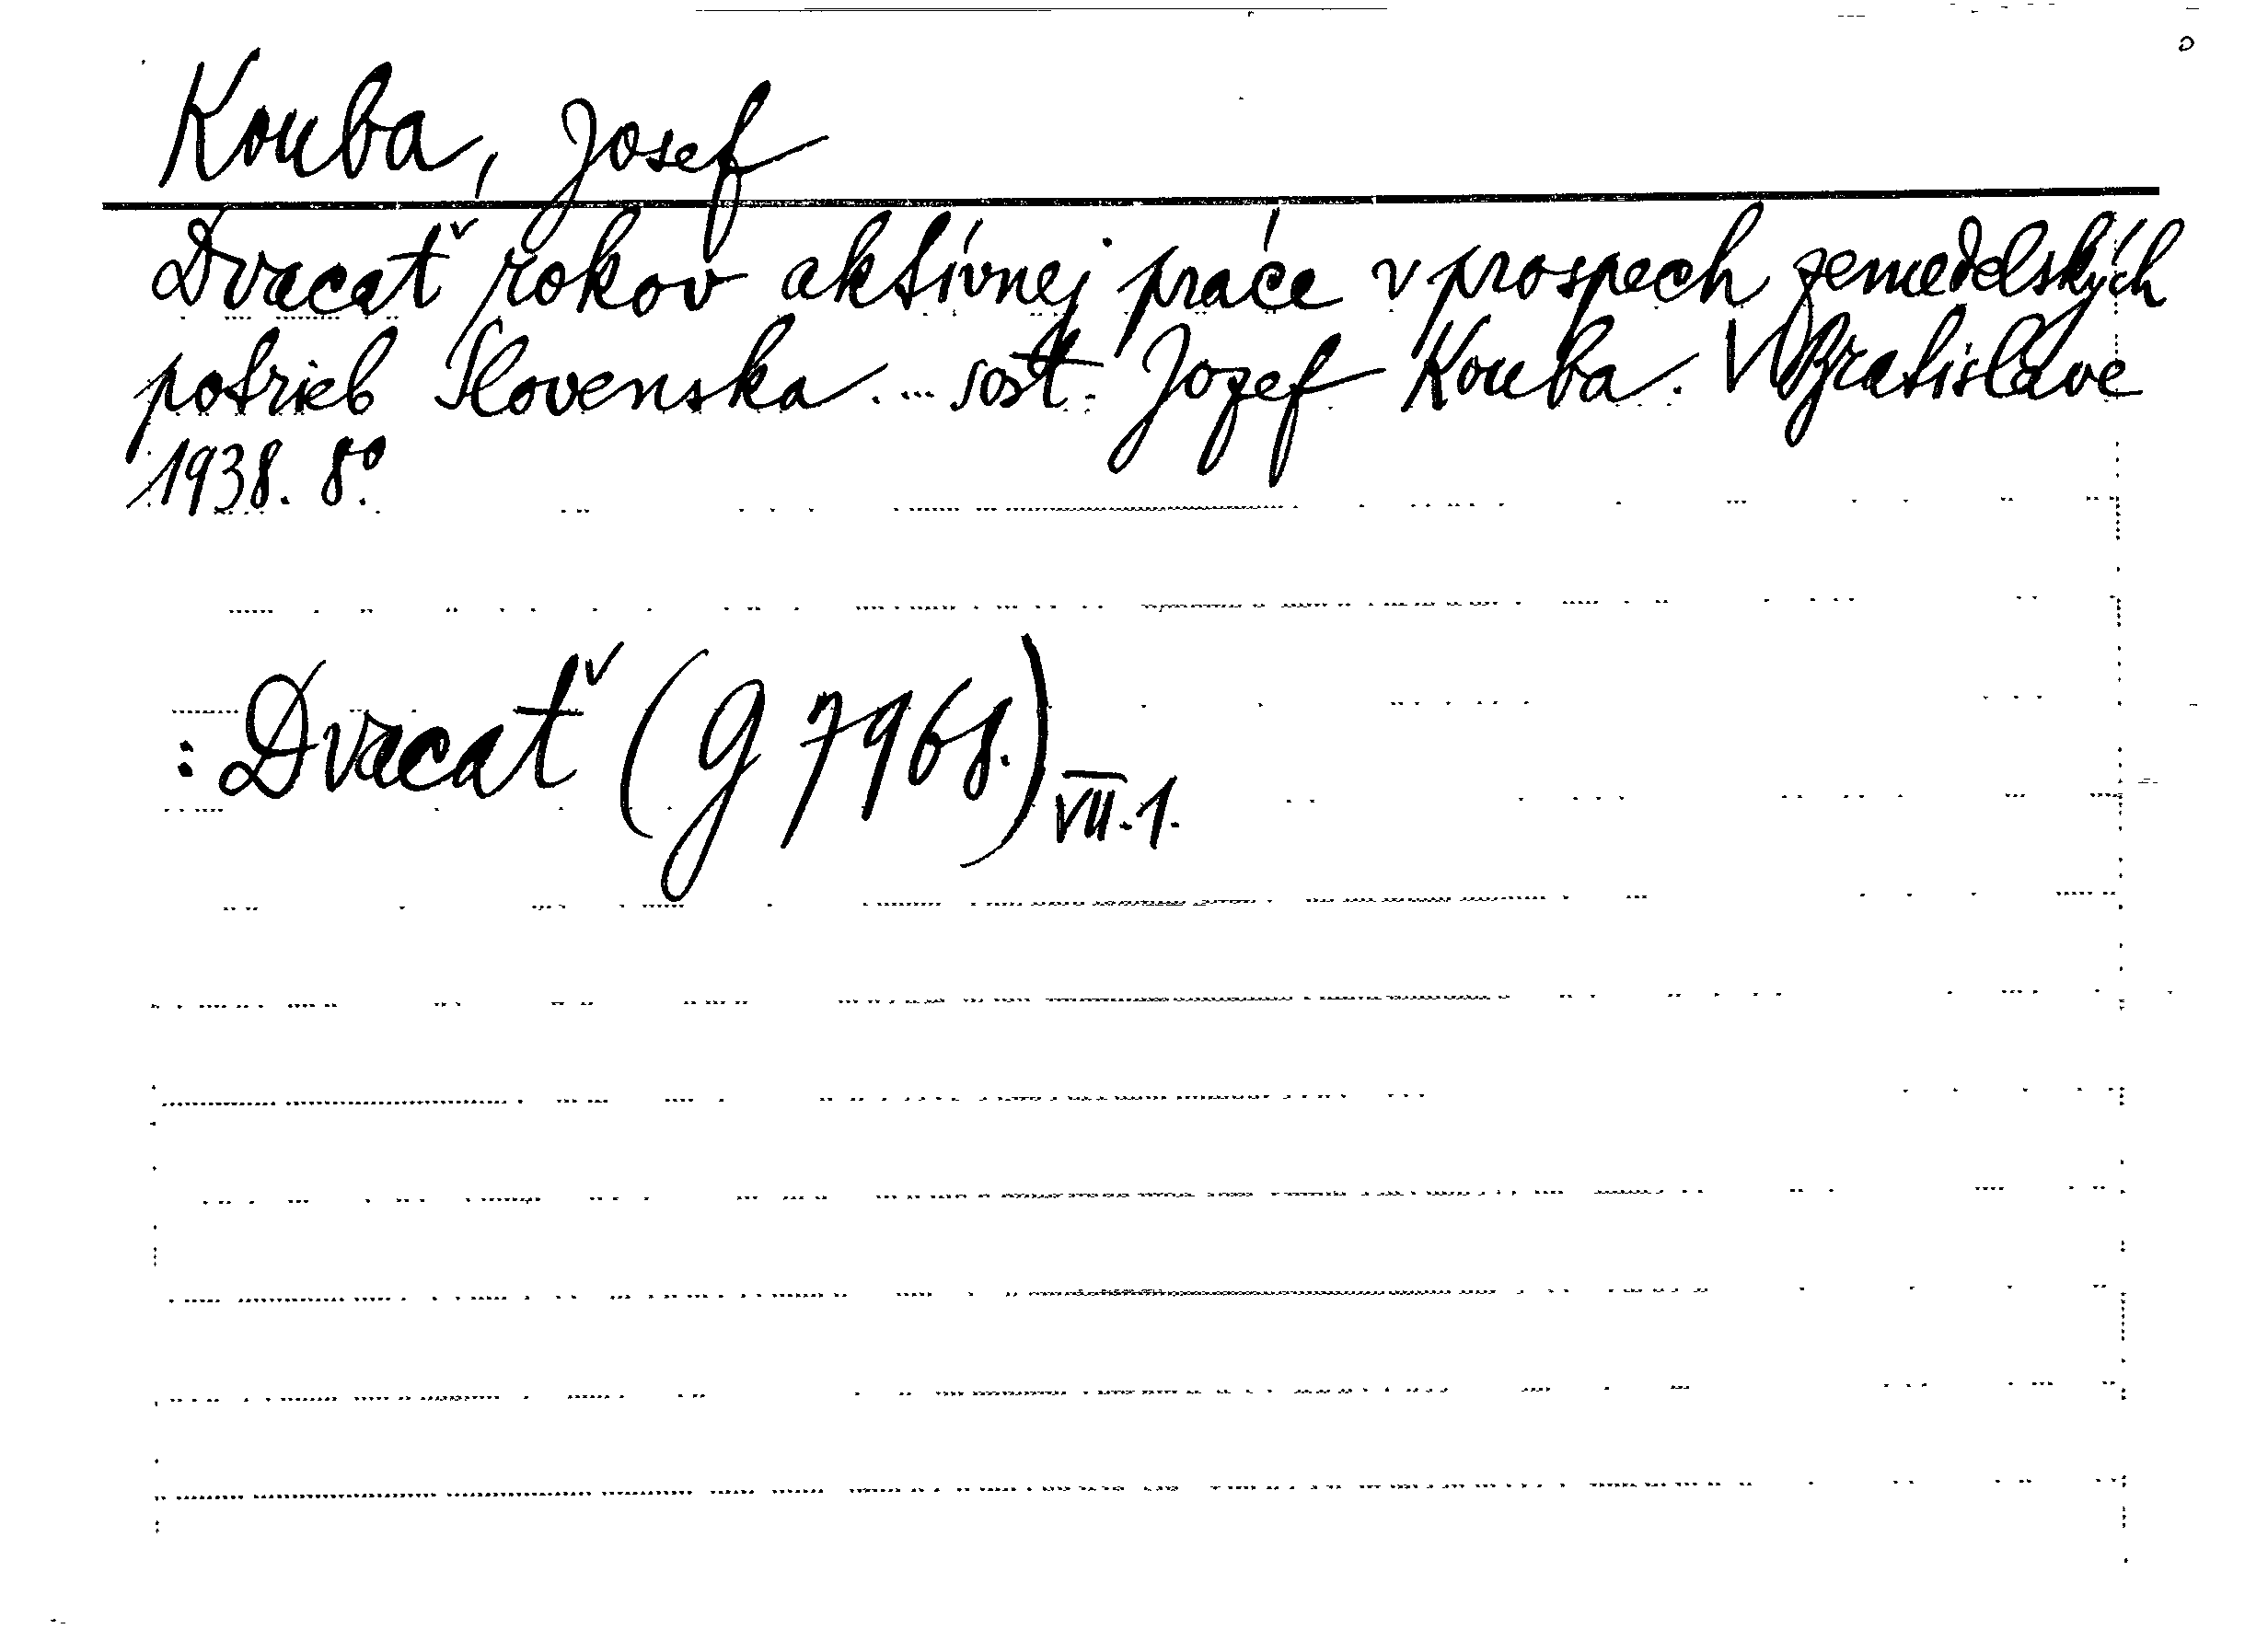 Kouba, Josef
Dvacať rokov aktívnej práce v prospech zemedelských
potrieb Slovenska. ... sost. Jozef Kouba. V Bratislave
1938. 8°.
: Dvacať (g 7968.) VII.1.